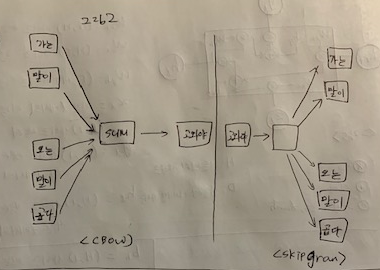 그림2
가는
말이
오는
말이
곱다
SUM
고와야
<CBOW>
고와야
가는
말이
오는
말이
곱다
<skipgram>